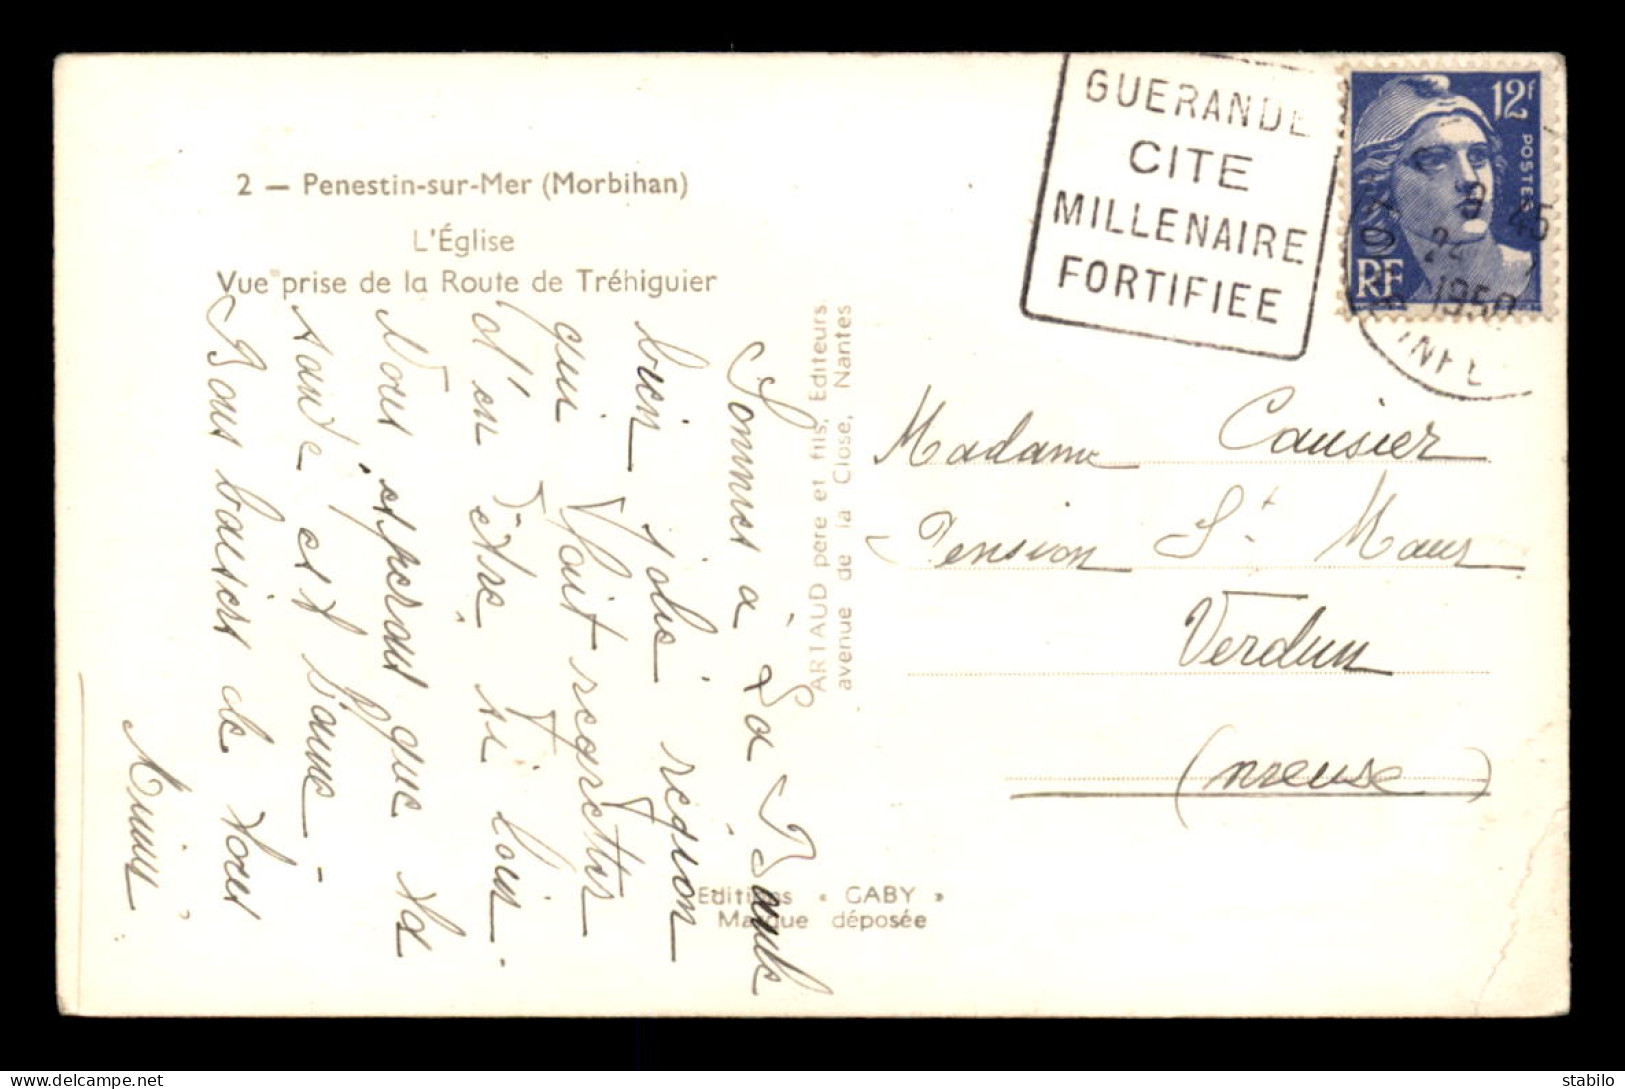 2 — Penestin-sur-Mer (Morbihan)
L'Église
Vue prise de la Route de Tréhiguier
GUERANDE
CITE
MILLENAIRE
FORTIFIEE
12f
POSTES
RF
1950
INFE
Sommes à La Baule
bien jolie région
qui fait regretter
d'en être si loin.
Nous espérons que ta
santé est bonne -
Bons baisers de tous
ARTAUD père et fils, Editeurs
avenue de la Close, Nantes
Editions « GABY »
Marque déposée
Madame Causier
Pension St Maur
Verdun
(Meuse)
stabilo